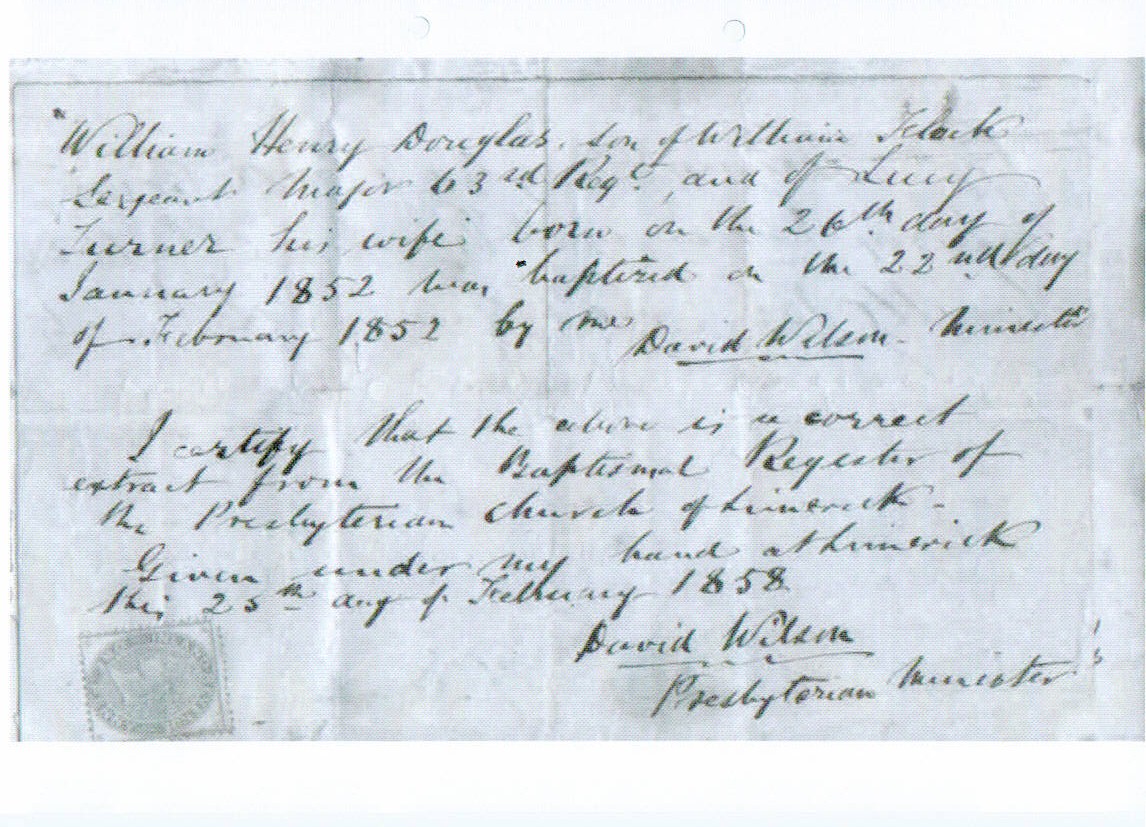 "William Henry Douglas, son of William Flack
Sergeant Major 63rd Regt. and of Lucy
Turner his wife born on the 26th day of
January 1852 was baptized on the 22nd day
of February 1852 by me
David Wilson - Minister"
I certify that the above is a correct
extract from the Baptismal Register of
the Presbyterian Church of Limerick -
Given under my hand at Limerick
this 25th day of February 1858
David Wilson
Presbyterian Minister